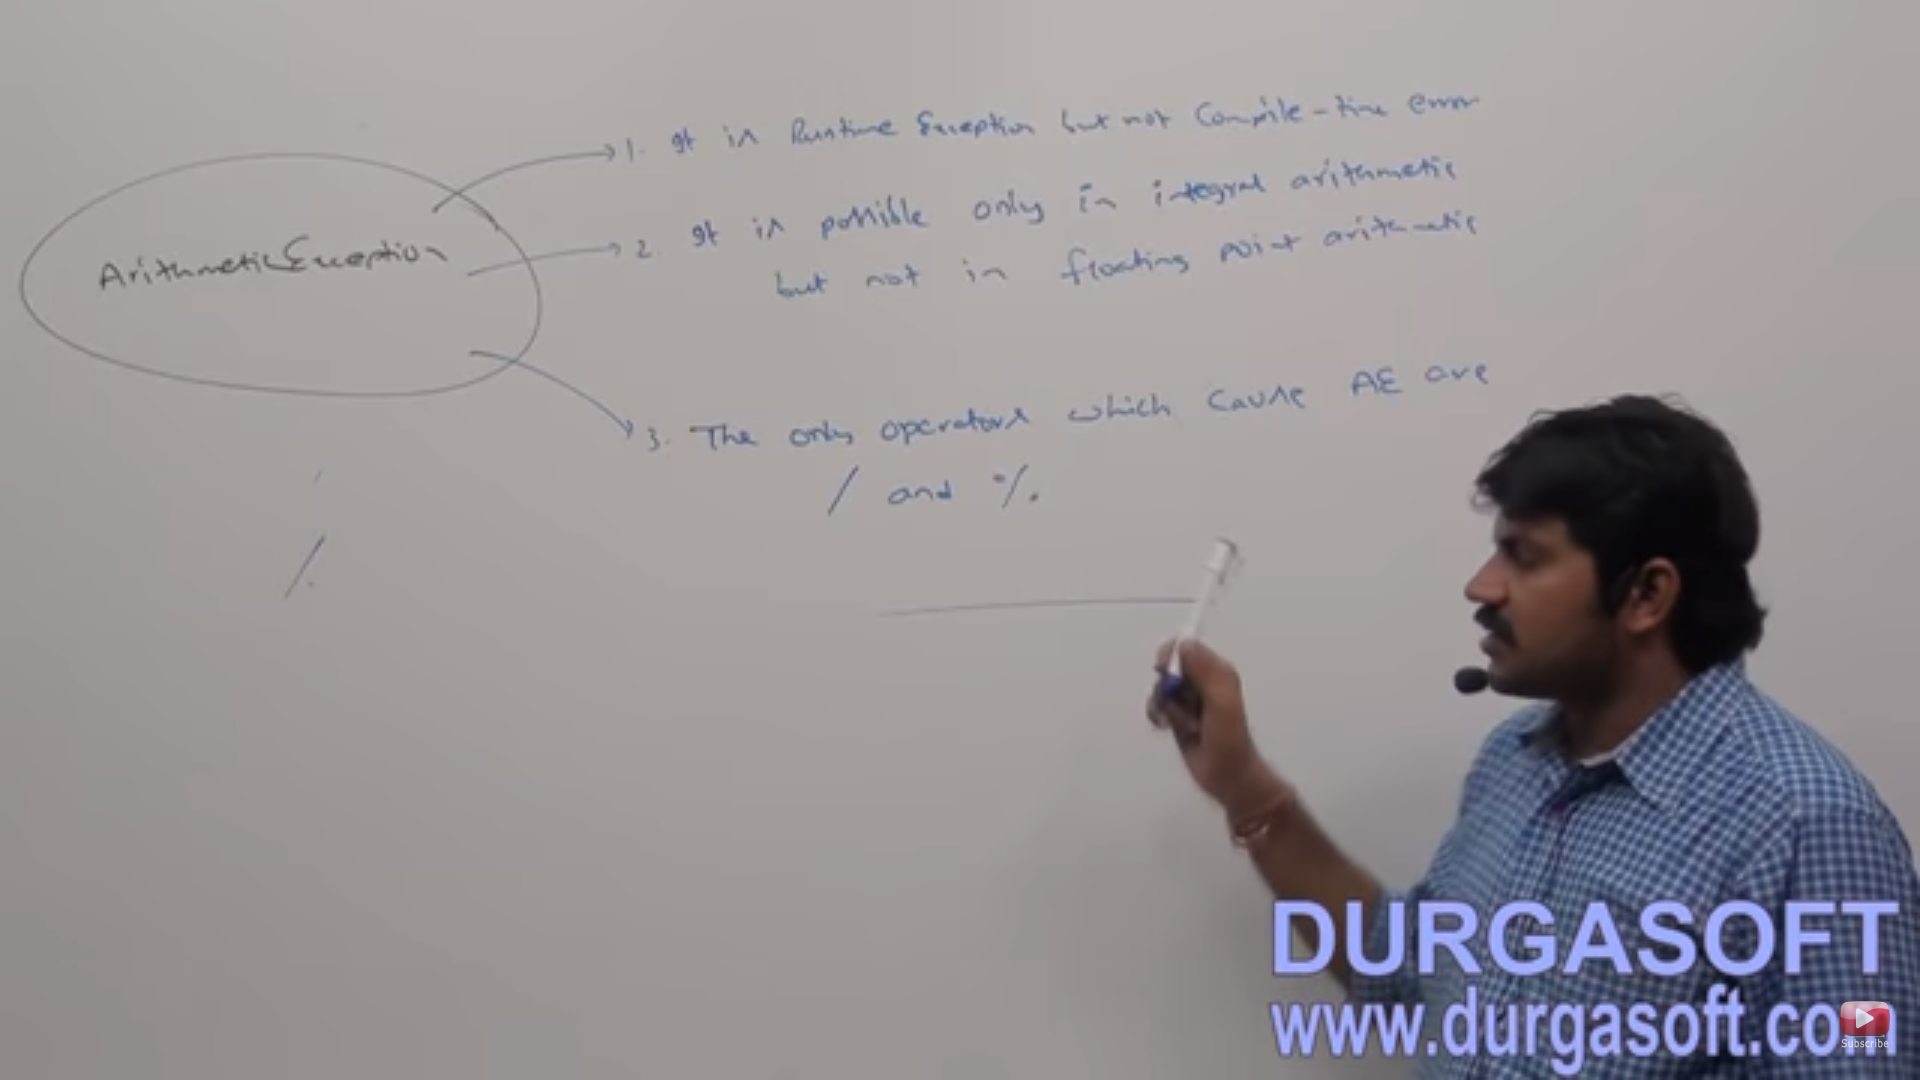 ArithmeticException
1. It is Runtime Exception but not Compile-time error
2. It is possible only in integral arithmetic
but not in floating point arithmetic
3. The only operators which cause AE are
/ and %.
DURGASOFT
www.durgasoft.com
Subscribe